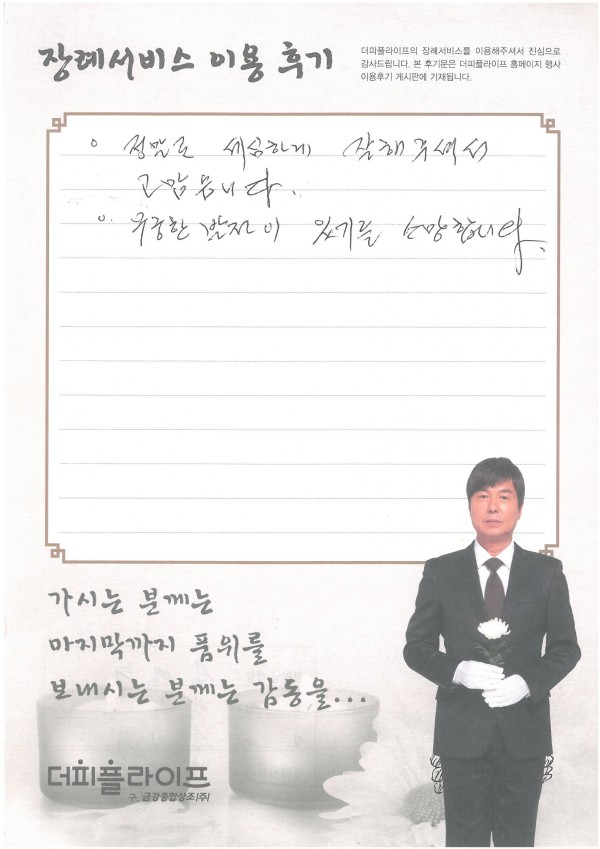 장례서비스 이용 후기
더피플라이프의 장례서비스를 이용해주셔서 진심으로
감사드립니다. 본 후기문은 더피플라이프 홈페이지 행사
이용후기 게시판에 기재됩니다.
정말로 세심하게 잘해주셔서
고맙습니다.
무궁한 발전이 있기를 소망합니다.
가시는 분께는
마지막까지 품위를
보내시는 분께는 감동을...
더피플라이프
구. 금강종합상조(주)